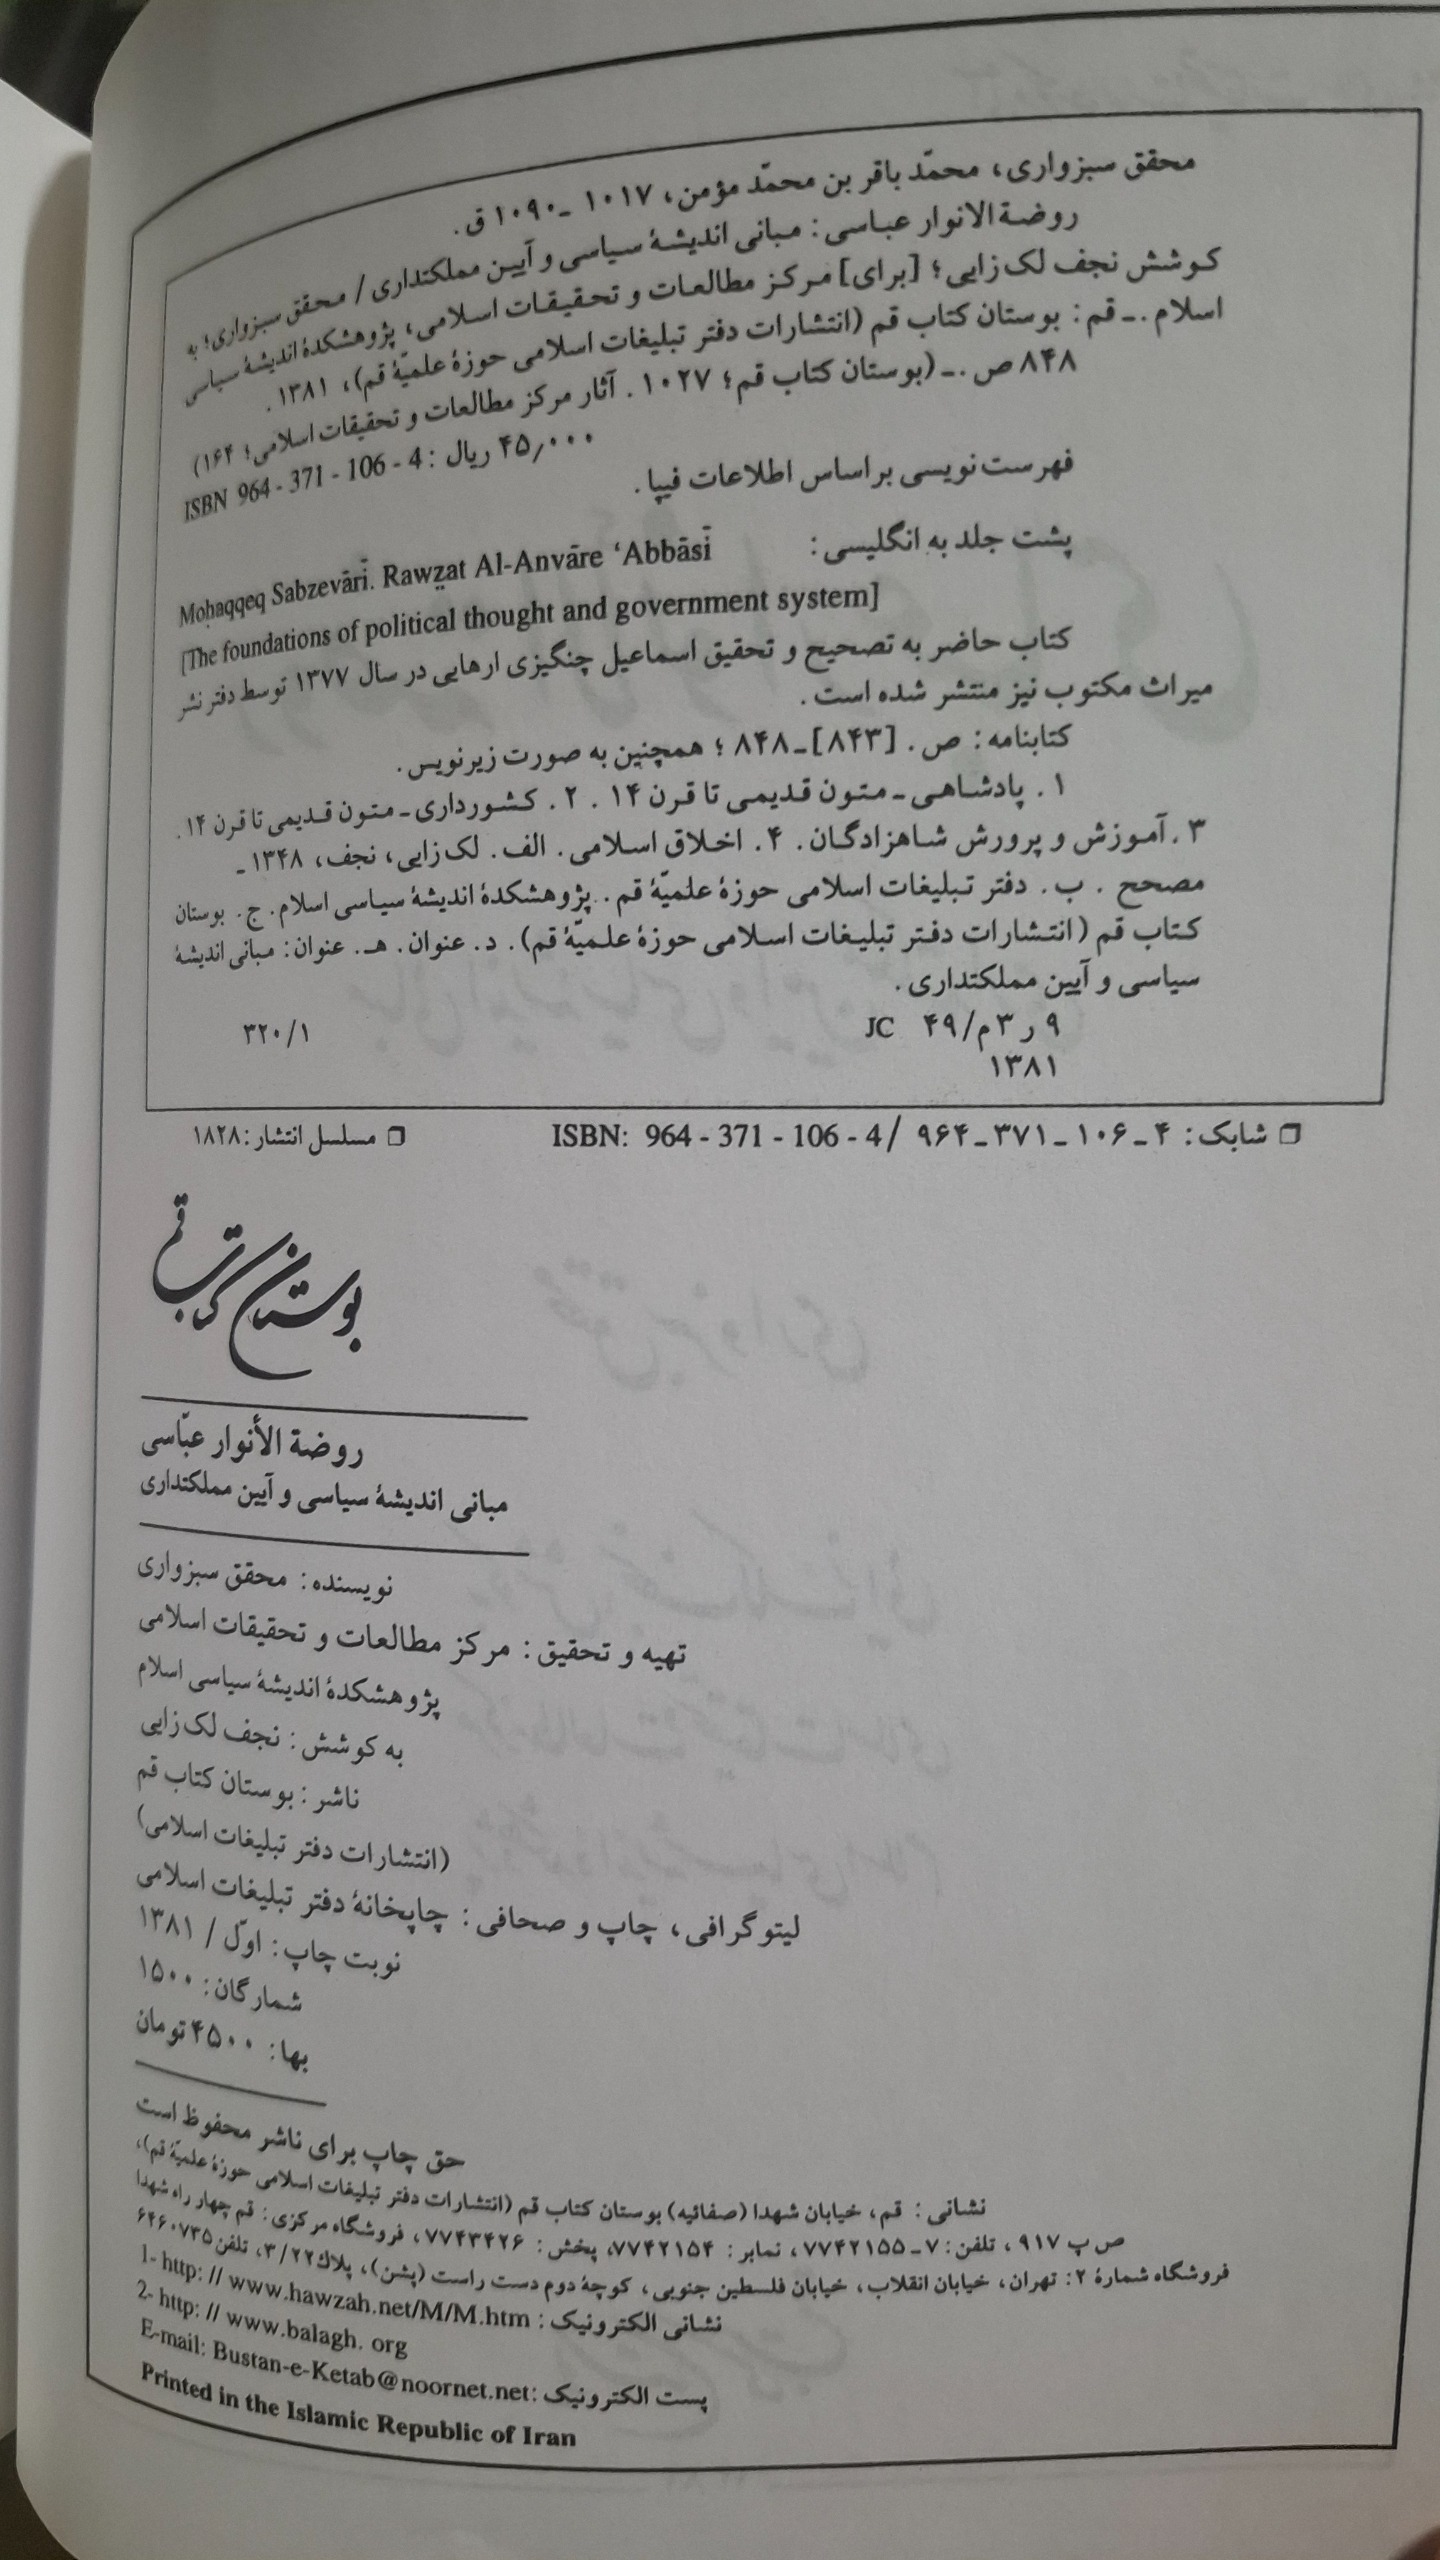 محقق سبزواری، محمّد باقر بن محمّد مؤمن، ۱۰۱۷ ـ ۱۰۹۰ ق.
روضة الانوار عباسی: مبانی اندیشهٔ سیاسی و آیین مملکتداری / محقق سبزواری؛ به
کوشش نجف لک‌زایی؛ [برای] مرکز مطالعات و تحقیقات اسلامی، پژوهشکدهٔ اندیشهٔ سیاسی
اسلام.ـ قم: بوستان کتاب قم (انتشارات دفتر تبلیغات اسلامی حوزهٔ علمیّهٔ قم)، ۱۳۸۱.
۸۴۸ ص.ـ (بوستان کتاب قم؛ ۱۰۲۷. آثار مرکز مطالعات و تحقیقات اسلامی؛ ۱۶۴)
ISBN 964 - 371 - 106 - 4 : ۴۵٫۰۰۰ ریال
فهرست‌نویسی براساس اطلاعات فیپا.
پشت جلد به انگلیسی:
Moḥaqqeq Sabzevāri. Rawẓat Al-Anvāre ‘Abbāsi
[The foundations of political thought and government system]
کتاب حاضر به تصحیح و تحقیق اسماعیل چنگیزی ارهایی در سال ۱۳۷۷ توسط دفتر نشر
میراث مکتوب نیز منتشر شده است.
کتابنامه: ص. [۸۴۳] ـ ۸۴۸؛ همچنین به صورت زیرنویس.
۱. پادشاهی ـ متون قدیمی تا قرن ۱۴. ۲. کشورداری ـ متون قدیمی تا قرن ۱۴.
۳. آموزش و پرورش شاهزادگان. ۴. اخلاق اسلامی. الف. لک‌زایی، نجف، ۱۳۴۸ ـ
مصحح. ب. دفتر تبلیغات اسلامی حوزهٔ علمیّهٔ قم. پژوهشکدهٔ اندیشهٔ سیاسی اسلام. ج. بوستان
کتاب قم (انتشارات دفتر تبلیغات اسلامی حوزهٔ علمیّهٔ قم). د. عنوان. هـ. عنوان: مبانی اندیشهٔ
سیاسی و آیین مملکتداری.
۹ ر ۳ م/ ۴۹ JC ۳۲۰/۱
۱۳۸۱
❒ شابک: ۴ ـ ۱۰۶ ـ ۳۷۱ ـ ۹۶۴ / ISBN: 964 - 371 - 106 - 4 ❒ مسلسل انتشار: ۱۸۲۸
بوستان کتاب قم
روضة الأنوار عبّاسی
مبانی اندیشهٔ سیاسی و آیین مملکتداری
نویسنده: محقق سبزواری
تهیه و تحقیق: مرکز مطالعات و تحقیقات اسلامی
پژوهشکدهٔ اندیشهٔ سیاسی اسلام
به کوشش: نجف لک‌زایی
ناشر: بوستان کتاب قم
(انتشارات دفتر تبلیغات اسلامی)
لیتوگرافی، چاپ و صحافی: چاپخانهٔ دفتر تبلیغات اسلامی
نوبت چاپ: اوّل / ۱۳۸۱
شمارگان: ۱۵۰۰
بها: ۴۵۰۰ تومان
حق چاپ برای ناشر محفوظ است
نشانی: قم، خیابان شهدا (صفائیه) بوستان کتاب قم (انتشارات دفتر تبلیغات اسلامی حوزهٔ علمیّهٔ قم)،
ص پ ۹۱۷، تلفن: ۷ ـ ۷۷۴۲۱۵۵، نمابر: ۷۷۴۲۱۵۴، پخش: ۷۷۴۳۴۲۶، فروشگاه مرکزی: قم چهار راه شهدا
فروشگاه شمارهٔ ۲: تهران، خیابان انقلاب، خیابان فلسطین جنوبی، کوچهٔ دوم دست راست (پشن)، پلاک ۳/۲۲، تلفن ۶۴۶۰۷۳۵
نشانی الکترونیک: 1- http: // www.hawzah.net/M/M.htm
2- http: // www.balagh. org
پست الکترونیک: E-mail: Bustan-e-Ketab@noornet.net
Printed in the Islamic Republic of Iran